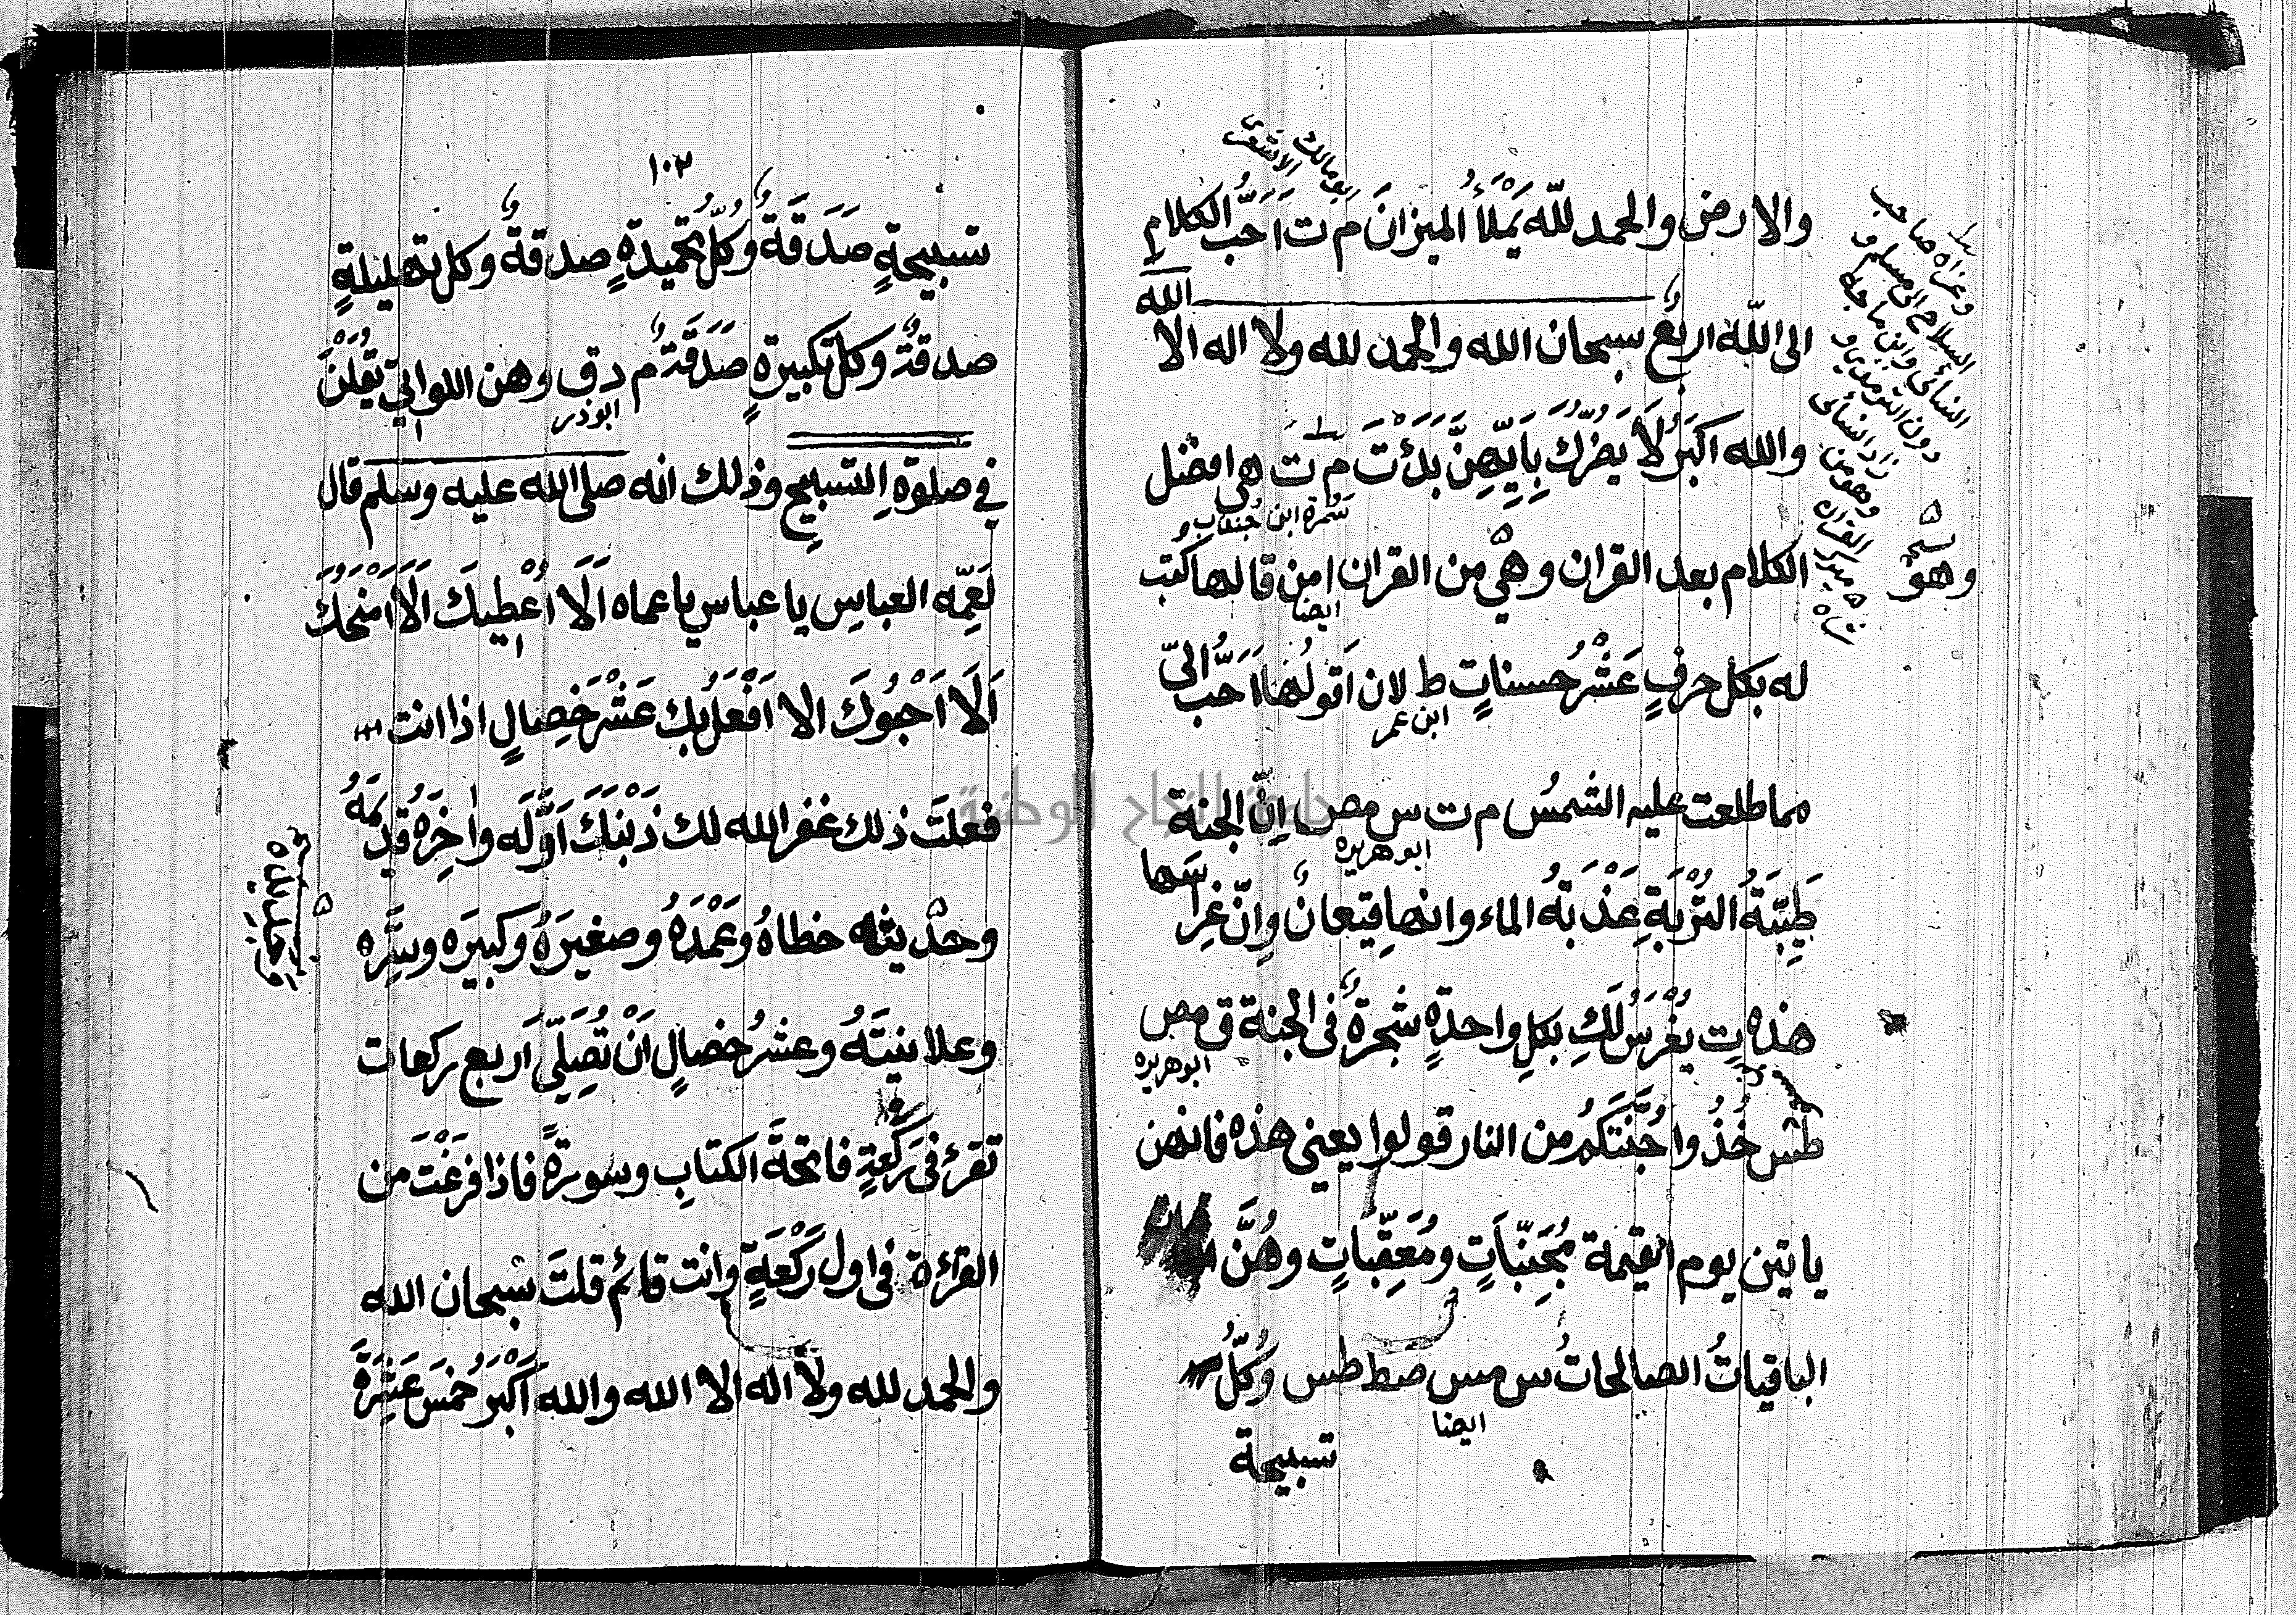 والارض والحمد لله يَمْلَأُ الميزانَ م ت اَحَبُّ الكلامِ
ابو مالك الاشعرى
الى اللّه اربعٌ سبحان الله والحمد لله ولا اله الا الله
والله اكبَرُ لَا يَضُرُّكَ بِاَيِّهِنَّ بَدَءْتَ م ت هى افضل
سَمُرة ابن جُندب
الكلام بعد القران وهْىَ من القران ا من قالها كُتب
ايضا
له بكل حرفٍ عَشْرُ حسناتٍ ط لان اَقولُها اَحَبُّ الىّ
ابن عمر
مما طلعت عليه الشمسُ م ت س مص اِنّ الجنة
ابو هريره
طَيِّبَةُ التُّرْبَةِ عَذْبَةُ الماء وانها قيعانٌ وانّ غِراسَها
هذه ت يُغْرَسُ لَكِ بكلِ واحدةٍ شجرةٌ فى الجنة ق مص
ابو هريره
طس خُذُوا جُنَّتَكُم من النار قولوا يعنى هذه فانهن
ياتين يوم القيمة مُجَنِّبَاتٍ ومُعَقِّبَاتٍ وهُنَّ
الباقياتُ الصالحاتُ س مس صط طس وَكُلُّ
ايضا
تسبيحة
وعزاه صاحب
السلاح الى مسلم و
النسائى وابن ماجه
دون الترمذى و
زاد النسائى
وهو من
القران
وهو
١٠٢
تسبيحةٍ صَدَقَةٌ وكُلُّ تحميدةٍ صدقةٌ وكل تهليلةٍ
صدقةٌ وكل تكبيرةٍ صَدَقَةٌ م د ق وهن اللواتى تقُلْنَ
ابو ذر
فى صلوةِ التسبيحِ وذلك انه صلى الله عليه وسلم قال
لَعَمِّه العباسِ يا عباس يا عماه اَلَا اُعْطِيكَ اَلَا اَمْنَحُكَ
اَلَا اَحْبُوكَ الا اَفْعَلُ بِكَ عَشْرَ خِصالٍ اذا انت
فعلتَ ذلك غفر الله لك ذَنْبَكَ اَوَّلَه واٰخِرَهُ قديمَهُ
وحديثه خطاهُ وعَمْدَهُ وصغيرَهُ وكبيرَه وسِرَّه
وعلانيتَهُ وعشرُ خصالٍ اَنْ تُصَلِّىَ اربع ركعات
تقرءُ فى رَكْعَةٍ فاتحةَ الكتابِ وسورةً فاذا فرَغْتَ من
القرٓاءة فى اول رَكْعَةٍ وانت قائم قلتَ سُبحان الله
والحمد لله ولا اله الا الله والله اَكْبَرُ خمْسَ عَشْرَةَ
جامعة النجاح الوطنية